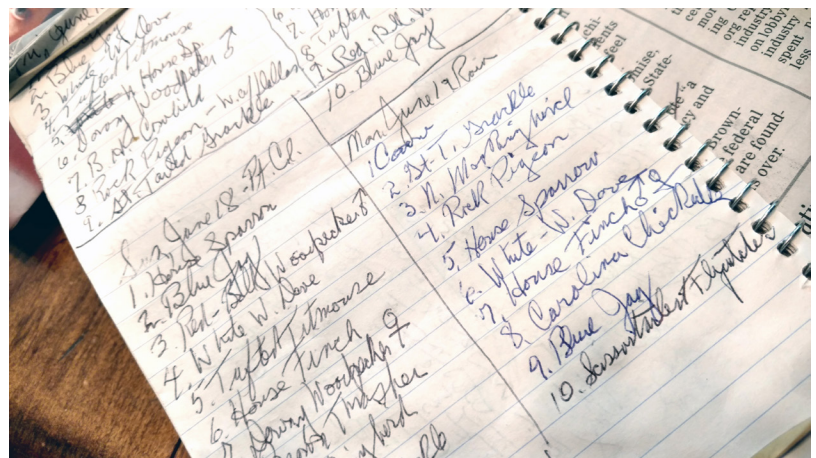 2. Blue Jay
3. White-W. Dove
4. Tufted Titmouse
5. House Sp.
6. Downy Woodpecker ♂
7. B. H. Cowbird
8. Rock Pigeon - W.
9. Gt. Tailed Grackle
8. Tufted
9. Red-Bell. W
10. Blue Jay
June 18 - Pt. Cl.
1. House Sparrow
2. Blue Jay
3. Red-Bell. Woodpecker ♂
4. White W. Dove
5. Tufted Titmouse
6. House Finch ♀
7. Downy Woodpecker ♀
Thrasher
Mon. June 19 Rain
1. Card
2. Gt. T. Grackle
3. N. Mockingbird
4. Rock Pigeon
5. House Sparrow
6. White-W. Dove
7. House Finch ♂♀
8. Carolina Chickadee
9. Blue Jay
10. Scissortailed Flycatcher
chi-
ents
feel
mise,
State-
"a
ry and
rown-
federal
are found-
s over.
mor
ing
org rep
industry
on lobby
industry
spent
less